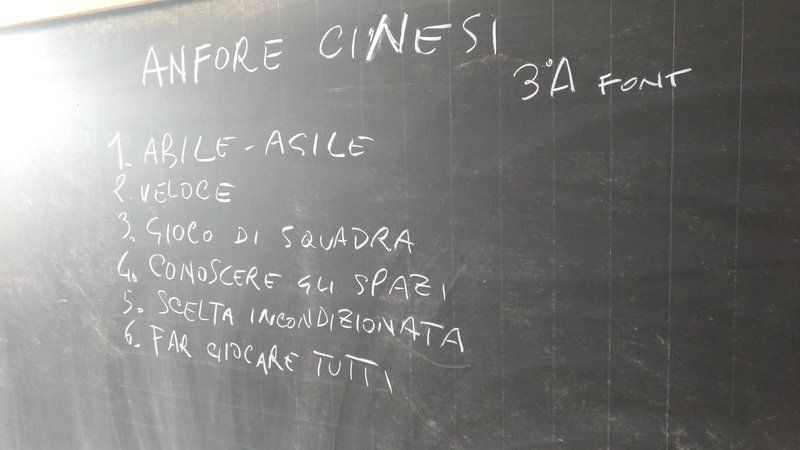 ANFORE CINESI
3°A FONT
1. ABILE - AGILE
2. VELOCE
3. GIOCO DI SQUADRA
4. CONOSCERE GLI SPAZI
5. SCELTA INCONDIZIONATA
6. FAR GIOCARE TUTTI